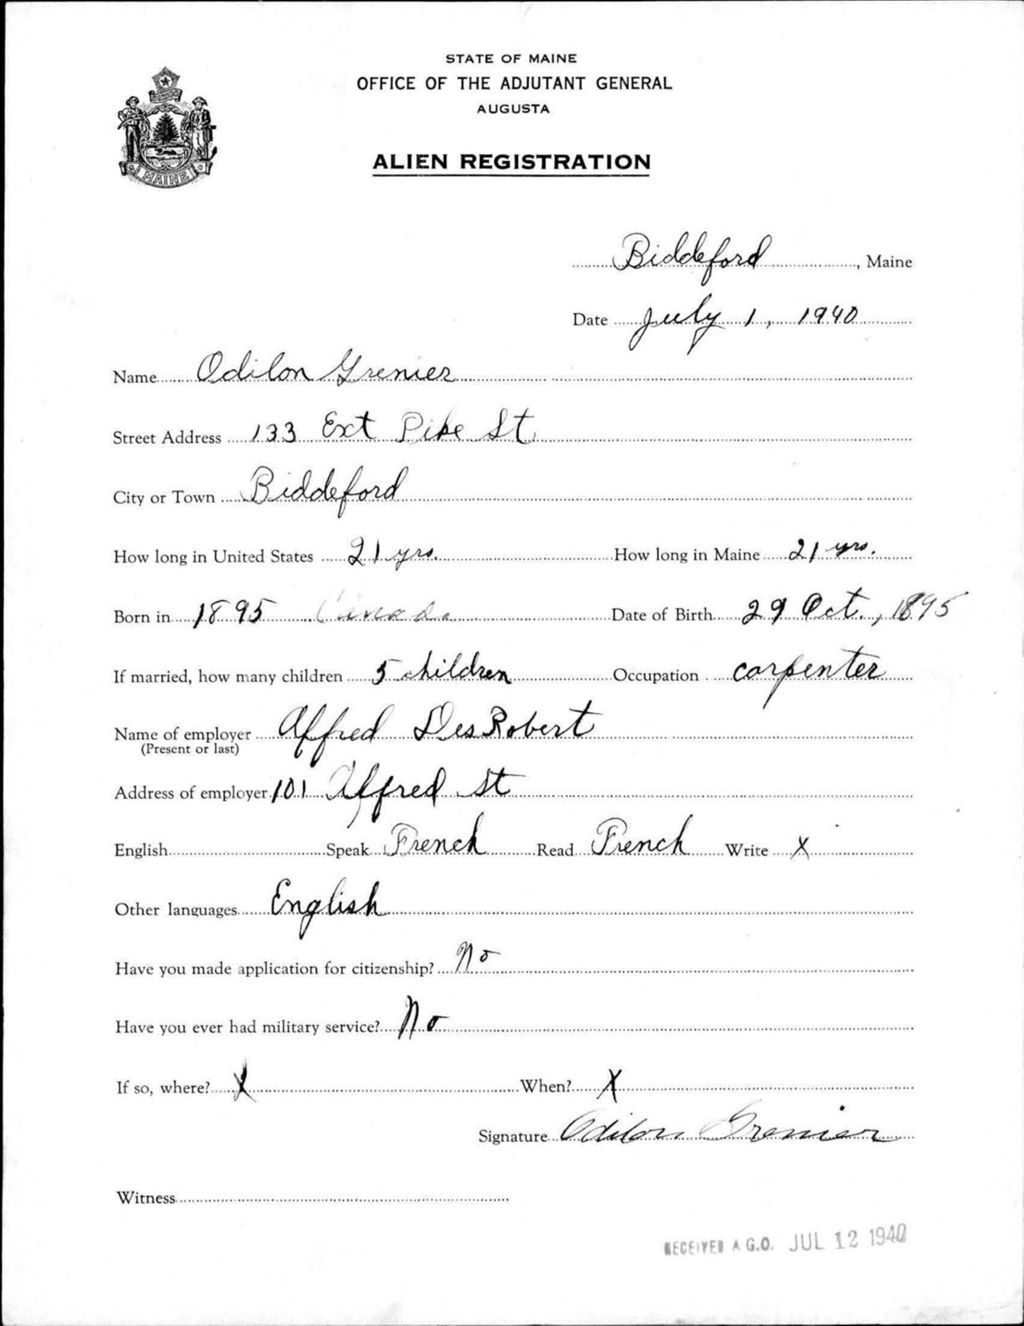 STATE OF MAINE
OFFICE OF THE ADJUTANT GENERAL
AUGUSTA
ALIEN REGISTRATION
MAINE
Biddeford, Maine
Date July 1, 1940
Name Odilon Grenier
Street Address 133 Ext Pike St.
City or Town Biddeford
How long in United States 21 yrs. How long in Maine 21 yrs.
Born in 1895 Canada Date of Birth 29 Oct., 1895
If married, how many children 5 children Occupation carpenter
Name of employer Alfred DesRobert
(Present or last)
Address of employer 101 Alfred St
English Speak French Read French Write X
Other languages English
Have you made application for citizenship? No
Have you ever had military service? No
If so, where? X When? X
Signature Odilon Grenier
Witness
RECEIVED A.G.O. JUL 12 1940